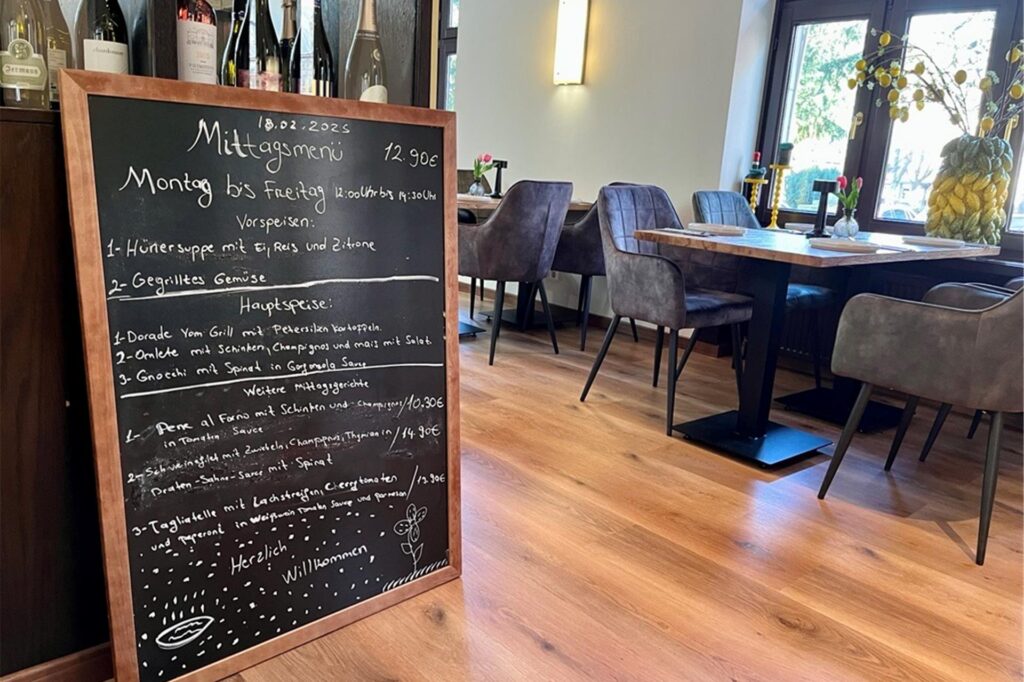 Jermann
chardonnay
18.02.2025
Mittagsmenü 12.90€
Montag bis Freitag 12:00 Uhr bis 14:30 Uhr
Vorspeisen:
1- Hünersuppe mit Ei, Reis und Zitrone
2- Gegrilltes Gemüse
Hauptspeise:
1- Dorade Vom Grill mit Petersilien Kartoffeln.
2- Omlete mit Schinken, Champignos und mais mit Salat.
3- Gnocchi mit Spinat in Gorgonzola Sauce
Weitere Mittagsgerichte
1- Pene al Forno mit Schinken und Champignos/10,30€
in Tomaten Sauce
2- Schweinsfilet mit Zwiebeln, Champignos, Thymian in/14.90€
Braten-Sahne-Sauce mit Spinat
3- Tagliatelle mit Lachstreifen, Cherrytomaten /13.90€
und peperoni in Weißwein Tomaten Sauce und parmesan
Herzlich
Willkommen